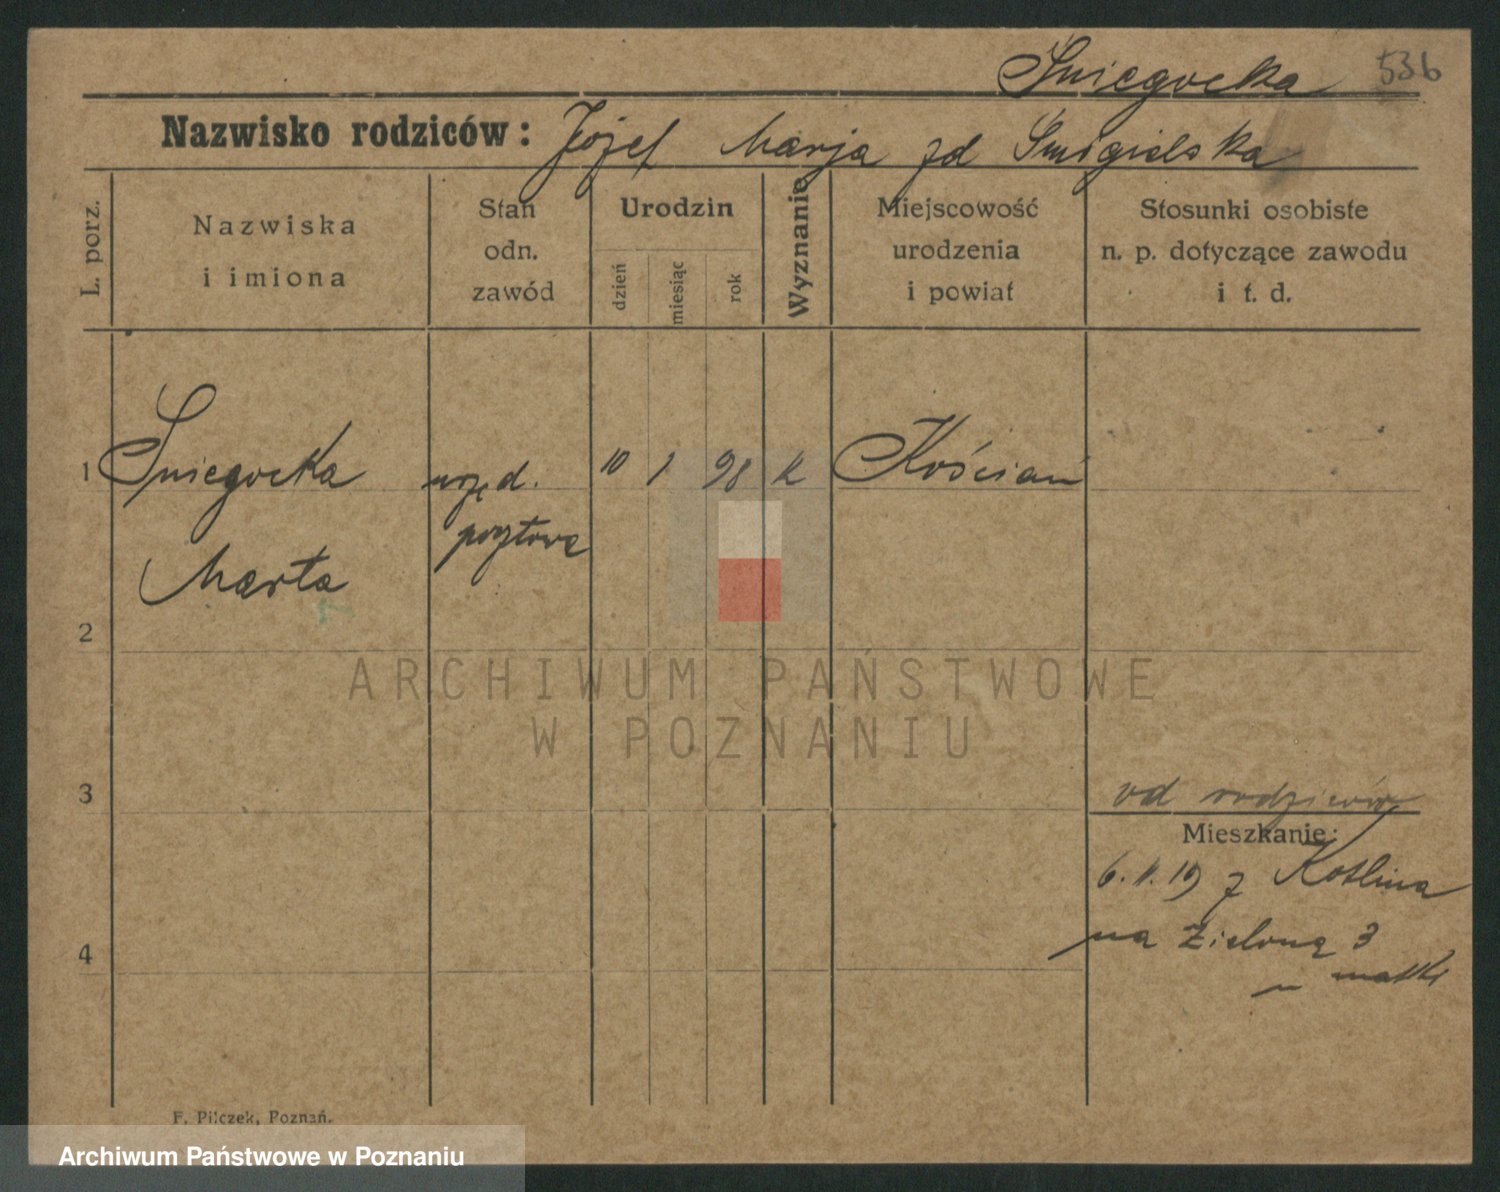 Śniegocka 536
Nazwisko rodziców: Józef Marja zd Śmigielska
L. porz.
Nazwiska
i imiona
Stan
odn.
zawód
Urodzin
dzień
miesiąc
rok
Wyznanie
Miejscowość
urodzenia
i powiat
Stosunki osobiste
n. p. dotyczące zawodu
i t. d.
1 Śniegocka urzęd. 10 1 98 k Kościan
pocztowa
Marta
2
ARCHIWUM PAŃSTWOWE
W POZNANIU
3
od rodziców
Mieszkanie:
6. II. 19 z Kotlina
na Zieloną 3
4
u matki
F. Pilczek, Poznań.
Archiwum Państwowe w Poznaniu